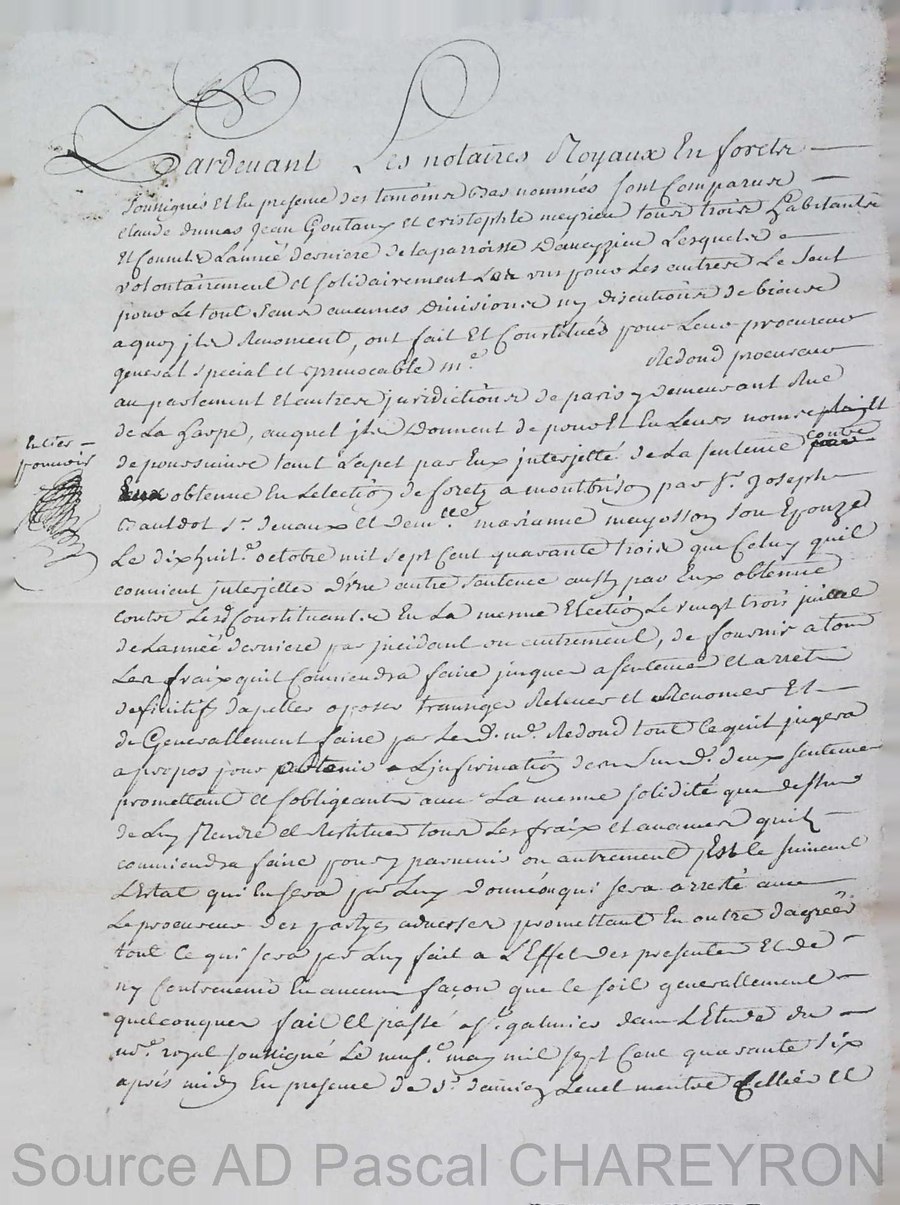 Pardevant Les notaires Royaux En forets
soussignés et En presence des temoins bas nommés sont Comparus
claude dumas jean Goutaux et cristophle meyrieu tous trois habitants
Et consuls L'année derniere de la parroisse d'aveyzieu Lesquels
volontairement et solidairement Les uns pour Les autres Le tout
pour Le tout sans aucunes divisions ny discutions de biens
a quoy jls Renoncent, ont fait Et Constitués pour Leur procureur
general special et jrrevocable m.e Redond procureur
au parlement et autres juridictions de paris y demeurant Rue
de La harpe, auquel jls donnent de pouvoir En Leurs noms
Entier
pouvoir
de poursuivre tant L'apel par Eux jnterjetté de La sentence contre
Eux obtenue En L'election de forets a montbrison par s.r joseph
s.r devaux et dem.lle marianne son Epouze
Le dixhuit.e octobre mil sept Cent quarante trois que Celuy qu'il
convient jnterjetter d'une autre sentence aussy par Eux obtenue
contre Lesd Constituants En La meme Election Le vingt trois juillet
de L'année derniere par jncidant ou autrement, de fournir a tous
Les fraix qu'il Conviendra faire jusques a sentence et arret
definitif d'apeller oposer transiger et Renoncer Et
de Generallement faire par Led. m.e Redond tout Ce qu'il jugera
a propos pour L'jnfirmation desd. deux sentences
promettant et s'obligeants avec La meme solidité que dessus
de Luy Rendre et Restituer tous Les fraix et avances qu'il
conviendra faire pour y parvenir ou autrement suivant
L'Estat qui En sera par Luy donné ou qui sera arresté avec
Le procureur des partyes adverses promettant En outre d'agréer
tout Ce qui sera par Luy fait a L'Effet des presentes Et de
ny Contrevenir En aucune façon que Ce soit generallement
quelconques fait Et passé a s.t galmier dans L'Etude du
no.e royal soussigné Le neuf.e may mil sept Cent quarante six
après midy En presence de s.r et
Source AD Pascal CHAREYRON